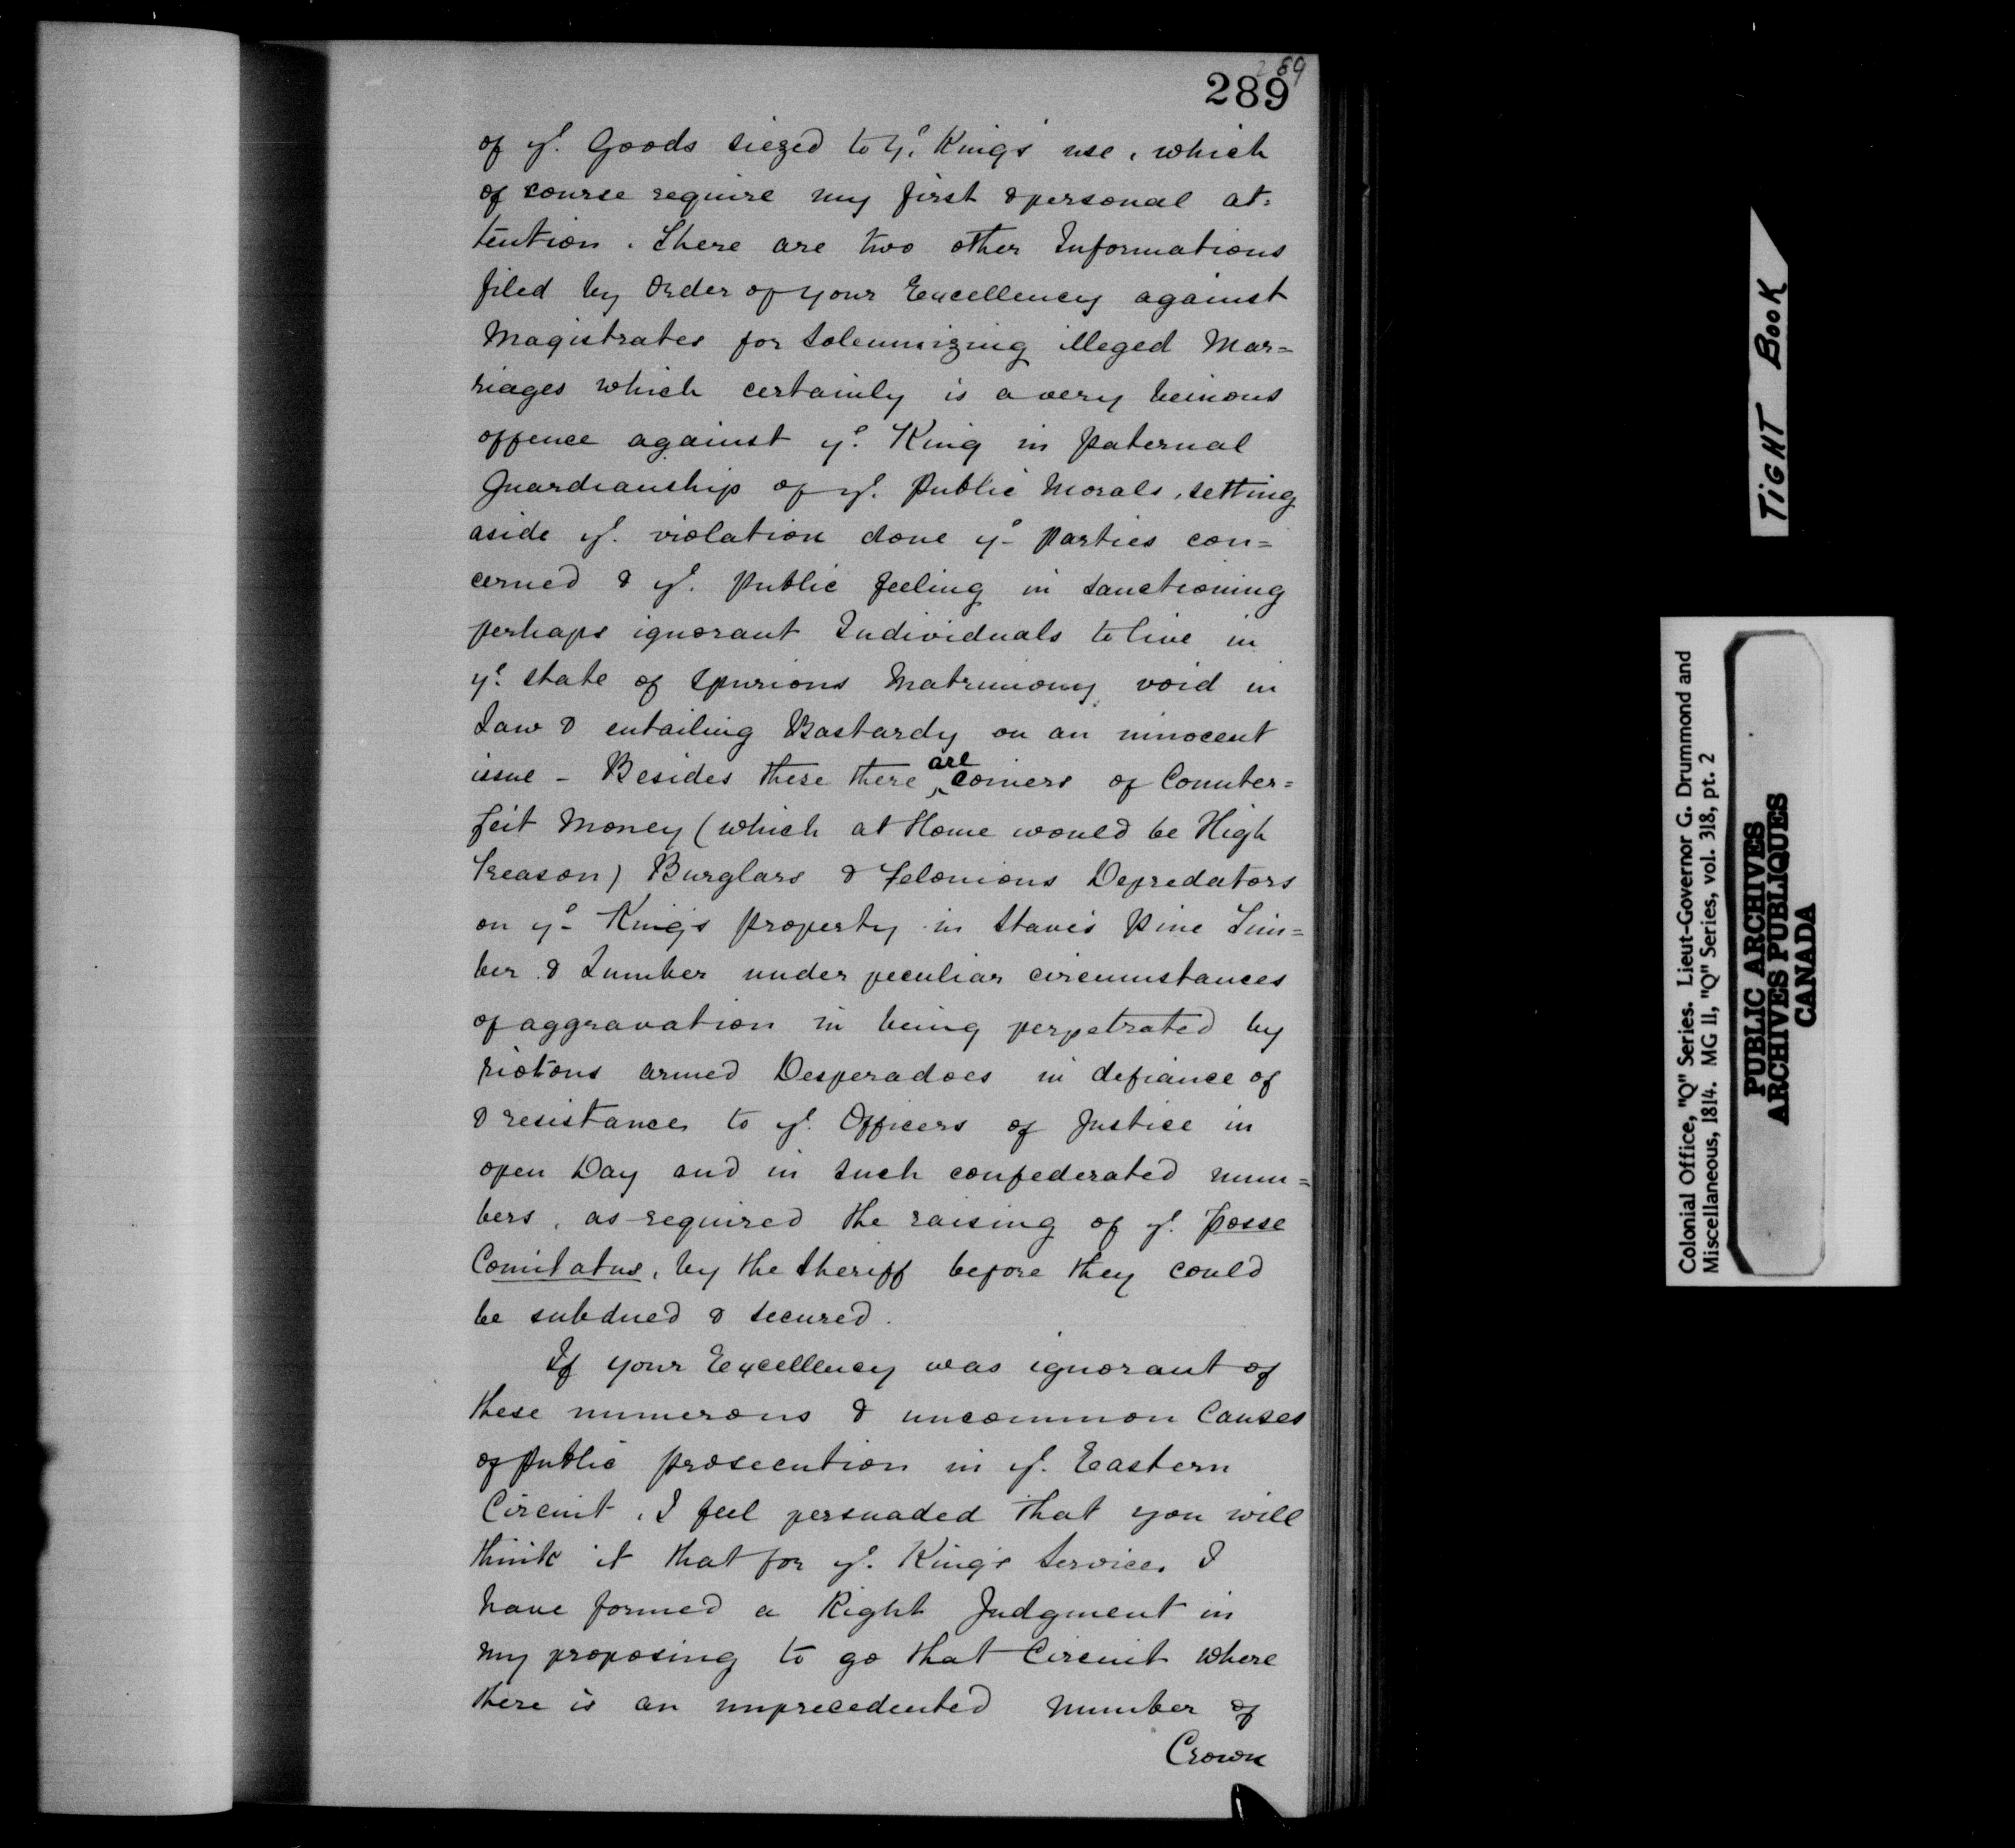 289
289
of ye. Goods siezed to ye. King's use, which
of course require my first & personal at=
tention. There are two other Informations
filed by Order of your Excellency against
Magistrates for Solemnizing illeged Mar=
riages which certainly is a very heinous
offence against ye. King in paternal
Guardianship of ye. Public Morals, setting
aside ye. violation done ye. parties con=
cerned & ye. public feeling in sanctioning
perhaps ignorant Individuals to live in
ye. state of spurious Matrimony void in
Law & entailing Bastardy on an innocent
issue - Besides these there are Coiners of Counter=
feit Money (which at Home would be High
Treason) Burglars & Felonious Depredators
on ye. King's property in Staves Pine Tim=
ber & Lumber under peculiar circumstances
of aggravation in being perpetrated by
riotous armed Desperadoes in defiance of
& resistance to ye. Officers of Justice in
open Day and in such confederated num=
bers, as required the raising of ye. Posse
Comitatus, by the Sheriff before they could
be subdued & secured.
If your Excellency was ignorant of
these numerous & uncommon Causes
of public prosecution in ye. Eastern
Circuit, I feel persuaded that you will
think it that for ye. King's Service, I
have formed a Right Judgment in
my proposing to go that Circuit where
there is an unprecedented number of
Crown
TIGHT BOOK
Colonial Office, "Q" Series. Lieut-Governor G. Drummond and
Miscellaneous, 1814. MG 11, "Q" Series, vol. 318, pt. 2
PUBLIC ARCHIVES
ARCHIVES PUBLIQUES
CANADA